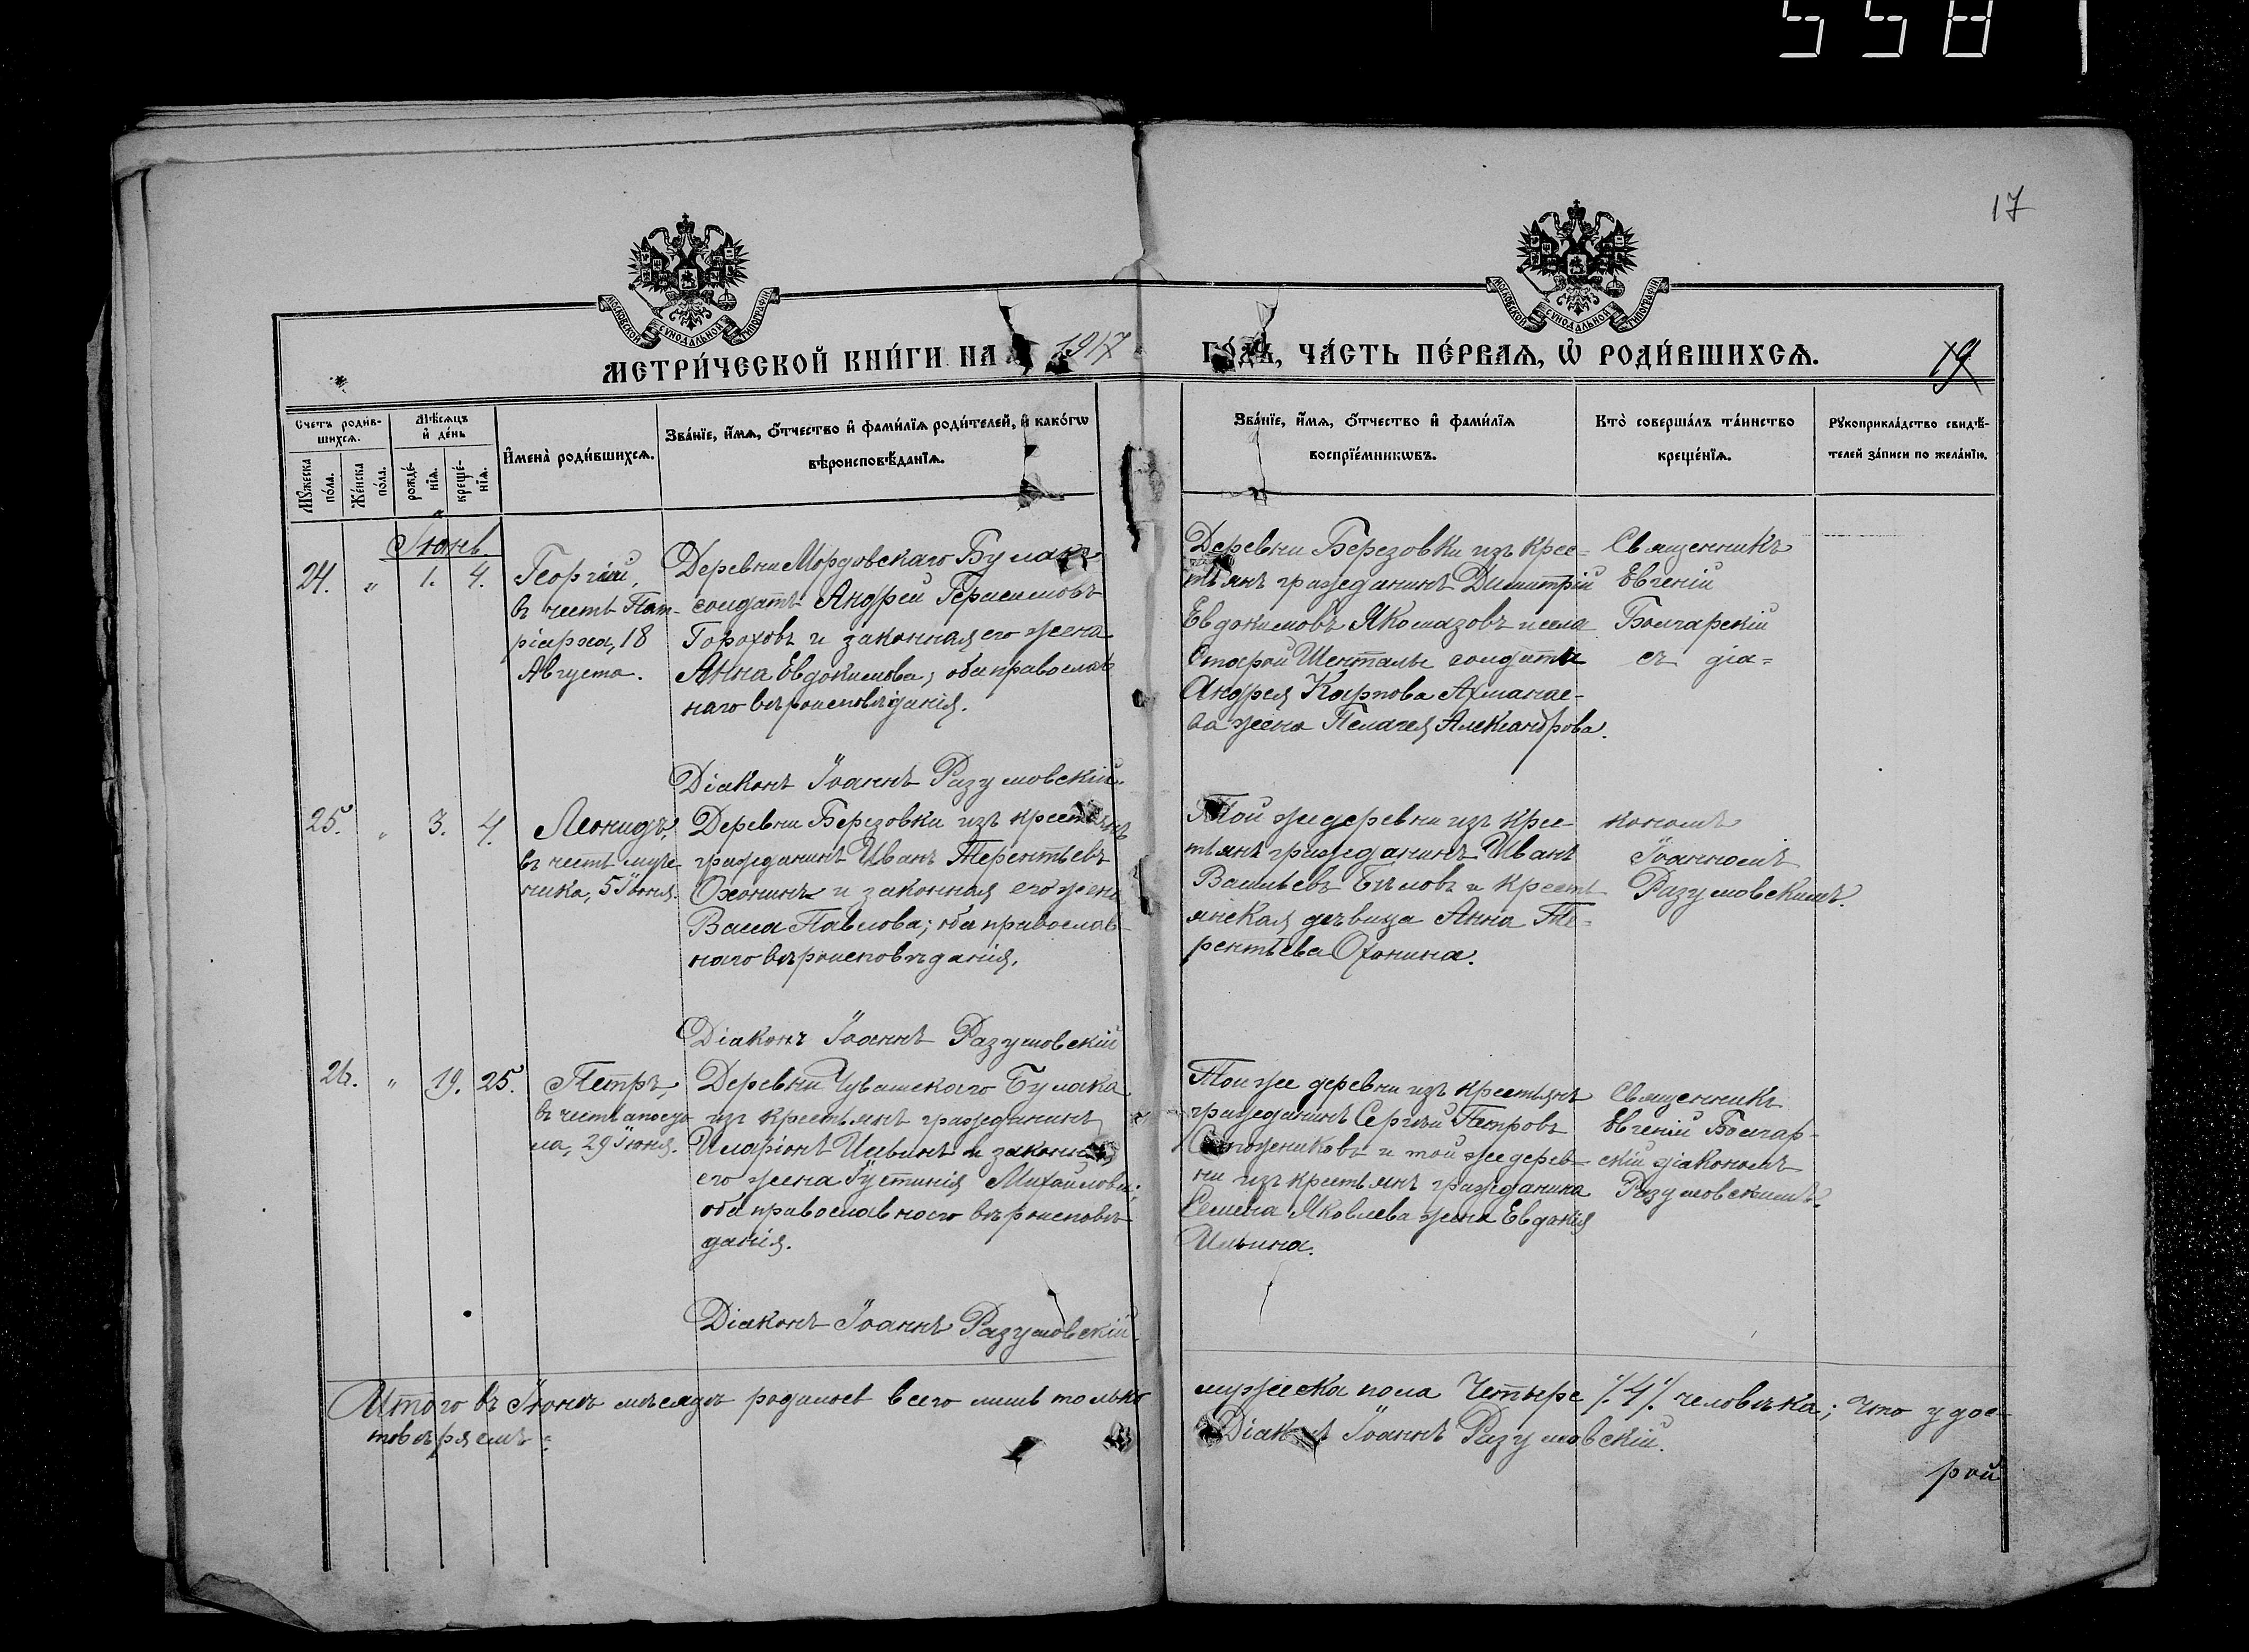 5581
17
МОСКОВСКОЙ СУНОДАЛЬНОЙ ТИПОГРАФІИ
МОСКОВСКОЙ СУНОДАЛЬНОЙ ТИПОГРАФІИ
МЕТРИ́ЧЕСКОЙ КНИ́ГИ НА 1917 ГО́ДЪ, ЧА́СТЬ ПЕ́РВАЯ, Ѡ РОДИ́ВШИХСЯ.
19
Счетъ родив-
шихсѧ.
Мѣ́сѧцъ
и҆ де́нь
И҆мена̀ роди́вшихсѧ.
Зва́нїе, и҆́мѧ, ѻ҆́тчество и҆ фами́лїѧ роди́телей, и҆ како́гѡ
вѣроисповѣ́данїѧ.
Мꙋ́жеска по́ла.
Же́нска по́ла.
рожде́-
нїѧ.
креще́-
нїѧ.
Зва́нїе, и҆́мѧ, ѻ҆́тчество и҆ фами́лїѧ
воспрїе́мникѡвъ.
Кто̀ соверша́лъ та́инство
креще́нїѧ.
Рꙋкоприкла́дство свидѣ́-
телей за́писи по жела́нїю.
Іюнь.
24. " 1. 4.
Георгій,
въ честь Пат-
ріарха, 18
Августа.
Деревни Мордовскаго Булака
солдатъ Андрей Герасимовъ
Гороховъ и законная его жена
Анна Евдокимова; оба православ
наго вѣроисповѣданія.
Діаконъ Іоаннъ Разумовскій.
Деревни Березовки изъ крес-
тьянъ гражданинъ Димитрій
Евдокимовъ Якомазовъ и села
Старой Шенталы солдата
Андрея Карпова Ахмание-
ва жена Пелагея Александрова.
Священникъ
Евгеній
Болгарскій
съ діа-
25. " 3. 4.
Леонидъ,
въ честь муче-
ника, 5 Іюня.
Деревни Березовки изъ крестьянъ
гражданинъ Иванъ Терентьевъ
Охонинъ и законная его жена
Васса Павлова; оба православ-
наго вѣроисповѣданія.
Діаконъ Іоаннъ Разумовскій
Той же деревни изъ крес-
тьянъ гражданинъ Иванъ
Васильевъ Бѣловъ и кресть
янская дѣвица Анна Те-
рентьева Охонина.
кономъ
Іоанномъ
Разумовскимъ.
26. " 19. 25.
Петръ,
въ честь апосто
ла, 29 Іюня.
Деревни Чувашскаго Булака
изъ крестьянъ гражданинъ
Иларіонъ Ильинъ и законная
его жена Іустинія Михайлова;
оба православнаго вѣроисповѣ-
данія.
Діаконъ Іоаннъ Разумовскій.
Той же деревни изъ крестьянъ
гражданинъ Сергѣй Петровъ
и той же дерев-
ни изъ крестьянъ гражданина
Семена Яковлева жена Евдокія
Ильина.
Священникъ
Евгеній Болгар-
скій діакономъ
Разумовскимъ.
Итого въ Іюнѣ мѣсяцѣ родилось всего лишь только мужеска пола Четыре /.4/. человѣка; что удос-
товѣряемъ: Діаконъ Іоаннъ Разумовскій.
рой